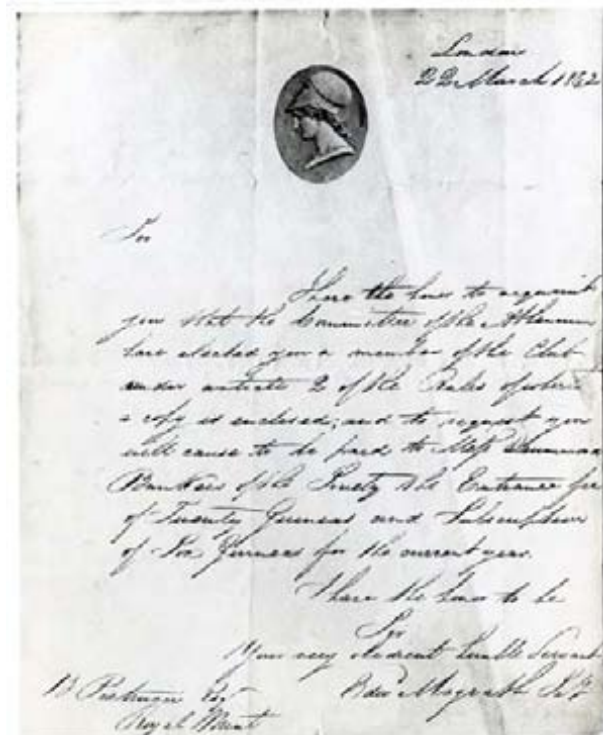 London
22 March 18
Sir
I have the honor to acquaint
you that the Committee of the Athenæum
have elected you a member of the Club
under article 2 of the Rules of which
a copy is enclosed; and to request you
will cause to be paid to Messrs Drummond
Bankers of the Society the Entrance fee
of Twenty Guineas and Subscription
of Six Guineas for the current year.
I have the honor to be
Sir
Your very obedient humble Servant
Edwd Magrath Secy
B Pistrucci Esqr
Royal Mint